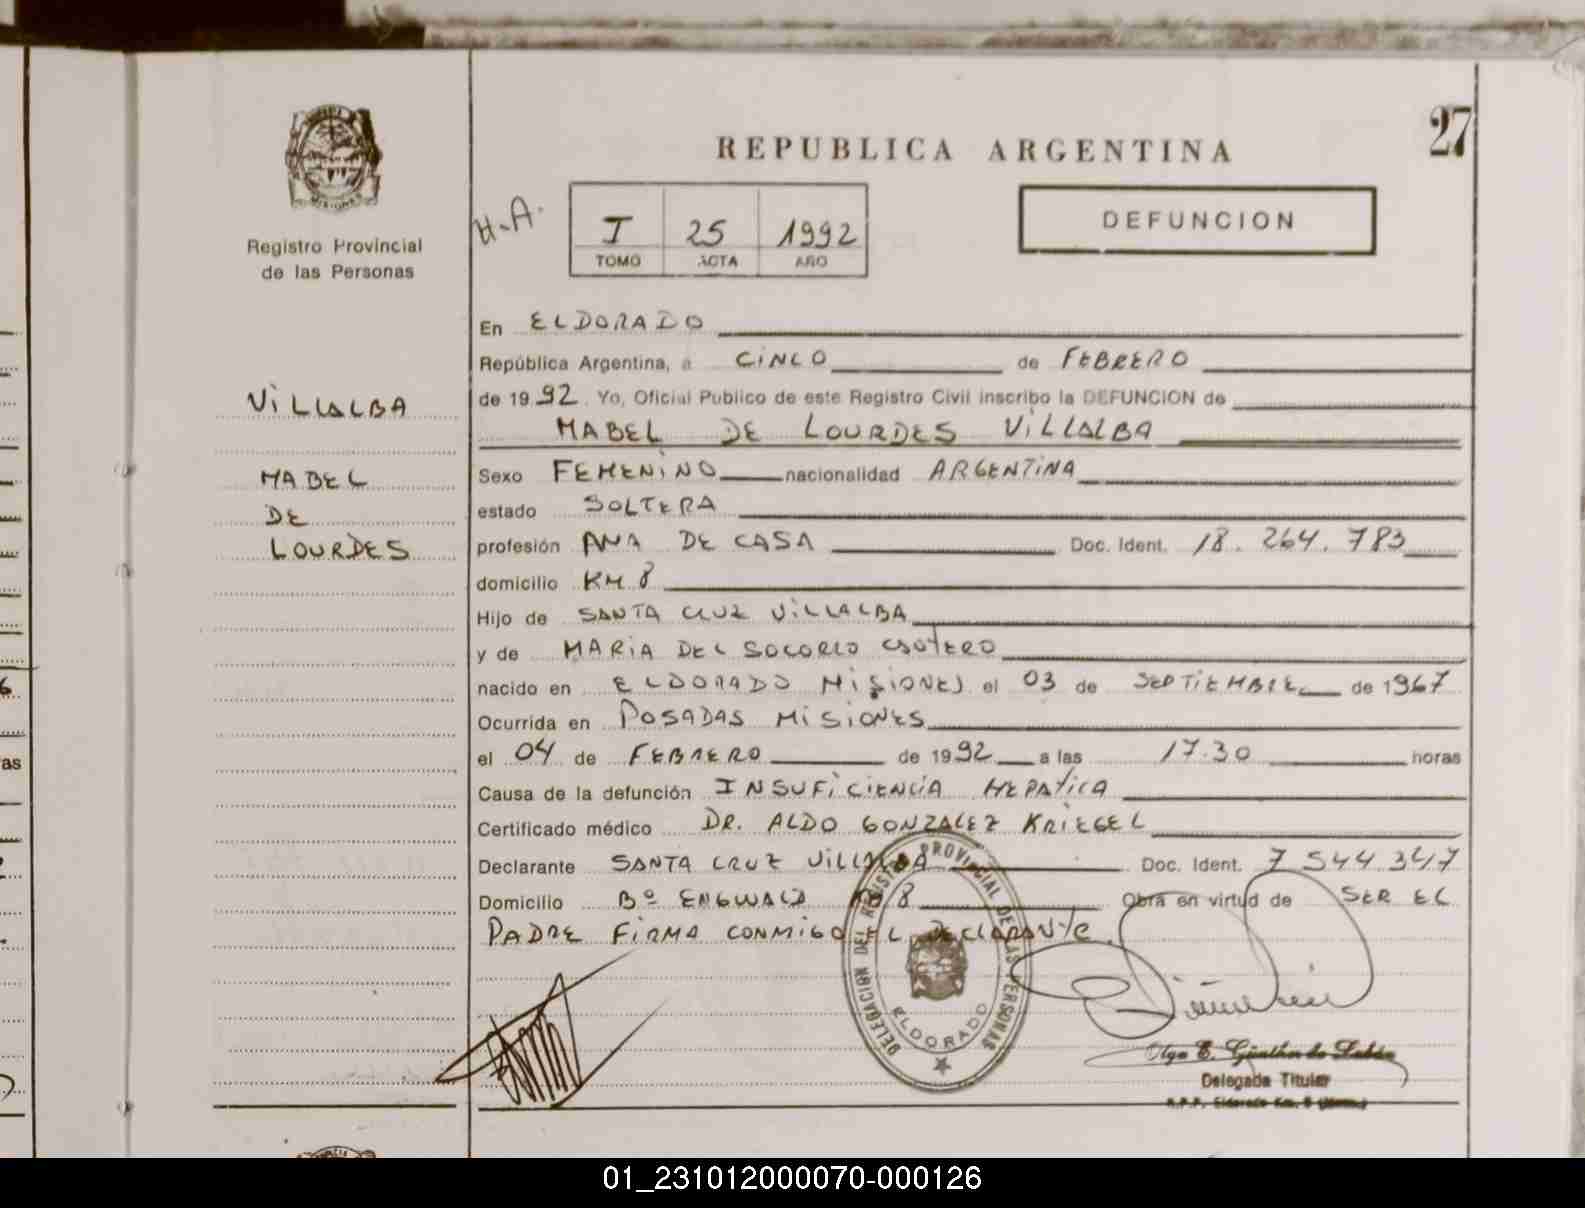 27
REPUBLICA ARGENTINA
MISIONES
Registro Provincial
de las Personas
H.A.
I 25 1992
TOMO ACTA AÑO
DEFUNCION
En ELDORADO
República Argentina, a CINCO de FEBRERO
de 1992. Yo, Oficial Publico de este Registro Civil inscribo la DEFUNCION de
VILLALBA
MABEL DE LOURDES VILLALBA
MABEL
DE
LOURDES
Sexo FEMENINO nacionalidad ARGENTINA
estado SOLTERA
profesión AMA DE CASA Doc. Ident. 18.264.783
domicilio KM 8
Hijo de SANTA CRUZ VILLALBA
y de MARIA DEL SOCORRO
nacido en ELDORADO MISIONES el 03 de SEPTIEMBRE de 1967
Ocurrida en POSADAS MISIONES
el 04 de FEBRERO de 1992 a las 17.30 horas
Causa de la defunción INSUFICIENCIA HEPATICA
Certificado médico DR. ALDO GONZALEZ KRIEGEL
Declarante SANTA CRUZ VILLALBA Doc. Ident. 7 544 347
Domicilio Bº ENGWALD KM 8 Obra en virtud de SER EL
PADRE FIRMA CONMIGO EL DECLARANTE.
DELEGACION DEL REGISTRO PROVINCIAL DE LAS PERSONAS
ELDORADO
Olga E. Günther de
Delegada Titular
R.P.P. Eldorado Km. 8
as
01_231012000070-000126